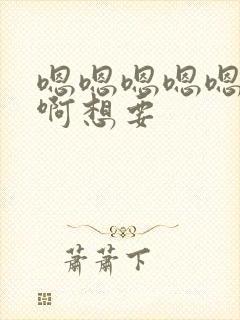 嗯嗯嗯嗯嗯
啊想要
萧萧下